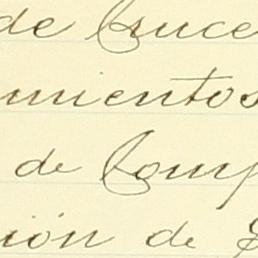 de Cruce
mientos
de Comp
ión de